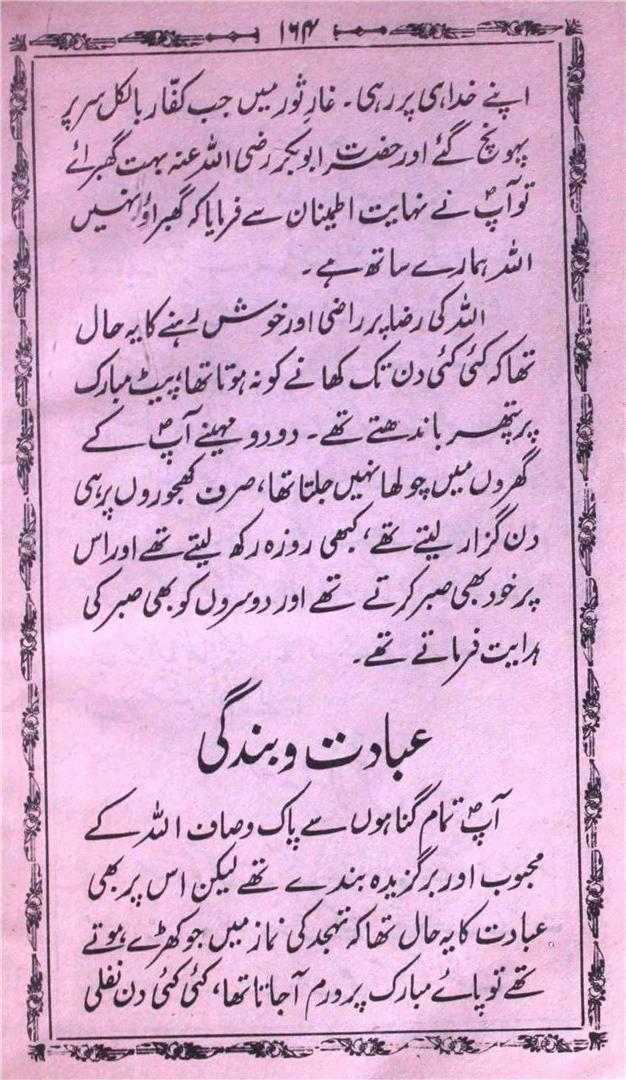 ۱۶۴
اپنے خدا ہی پر رہی۔ غارِ ثور میں جب کفّار بالکل سر پر
پہونچ گئے اور حضرت ابوبکر رضی اللہ عنہ بہت گھبرائے
تو آپؐ نے نہایت اطمینان سے فرمایا کہ گھبراؤ نہیں
اللہ ہمارے ساتھ ہے۔
اللہ کی رضا پر راضی اور خوش رہنے کا یہ حال
تھا کہ کئی کئی دن تک کھانے کو نہ ہوتا تھا، پیٹ مبارک
پر پتھر باندھتے تھے۔ دو دو مہینے آپؐ کے
گھروں میں چولھا نہیں جلتا تھا، صرف کھجوروں پر ہی
دن گزار لیتے تھے، کبھی روزہ رکھ لیتے تھے اور اس
پر خود بھی صبر کرتے تھے اور دوسروں کو بھی صبر کی
ہدایت فرماتے تھے۔
عبادت و بندگی
آپؐ تمام گناہوں سے پاک و صاف اللہ کے
محبوب اور برگزیدہ بندے تھے لیکن اس پر بھی
عبادت کا یہ حال تھا کہ تہجد کی نماز میں جو کھڑے ہوتے
تھے تو پائے مبارک پر ورم آجاتا تھا، کئی کئی دن نفلی